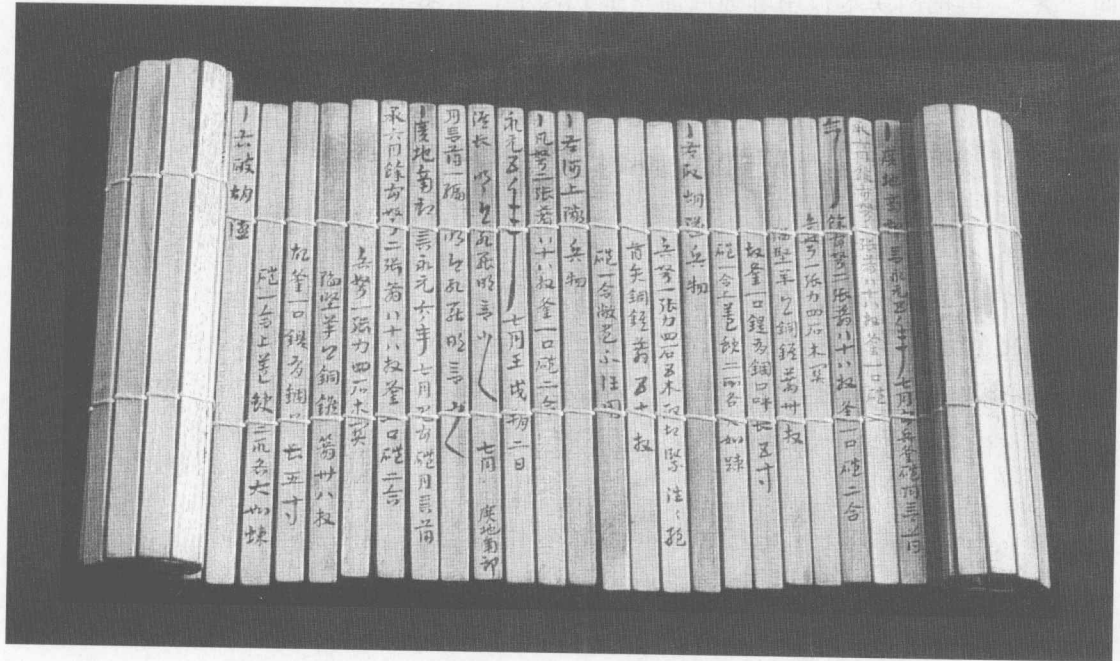 ●廣地南部言永元五年七月見官兵釜磑月言簿
承六月餘官弩二張箭八十八枚釜一口磑二合
餘官弩二張箭八十八枚釜一口磑二合
赤弩一張力四石木關
陷堅羊頭銅鍭箭卅八枚
故釜一口鍉有錮口呼長五寸
磑一合上蓋缺二所各大如疎
●右破胡隧兵物
赤弩一張力四石五木破起繳往往絕
盾矢銅鍭箭五十枚
磑一合敝盡不任用
●右河上隧兵物
●凡弩二張箭八十八枚釜一口磑二合
永元五年七月壬戌朔二日
叩頭死罪敢言之 七月 廣地南部
月言簿一編叩頭死罪敢言之
●廣地南部言永元六年七月見官兵釜磑月言簿
承六月餘官弩二張箭八十八枚釜一口磑二合
赤弩一張力四石木關
陷堅羊頭銅鍭箭卅八枚
故釜一口鍉有錮口長五寸
磑一合上蓋缺二所各大如疎
●右破胡隧